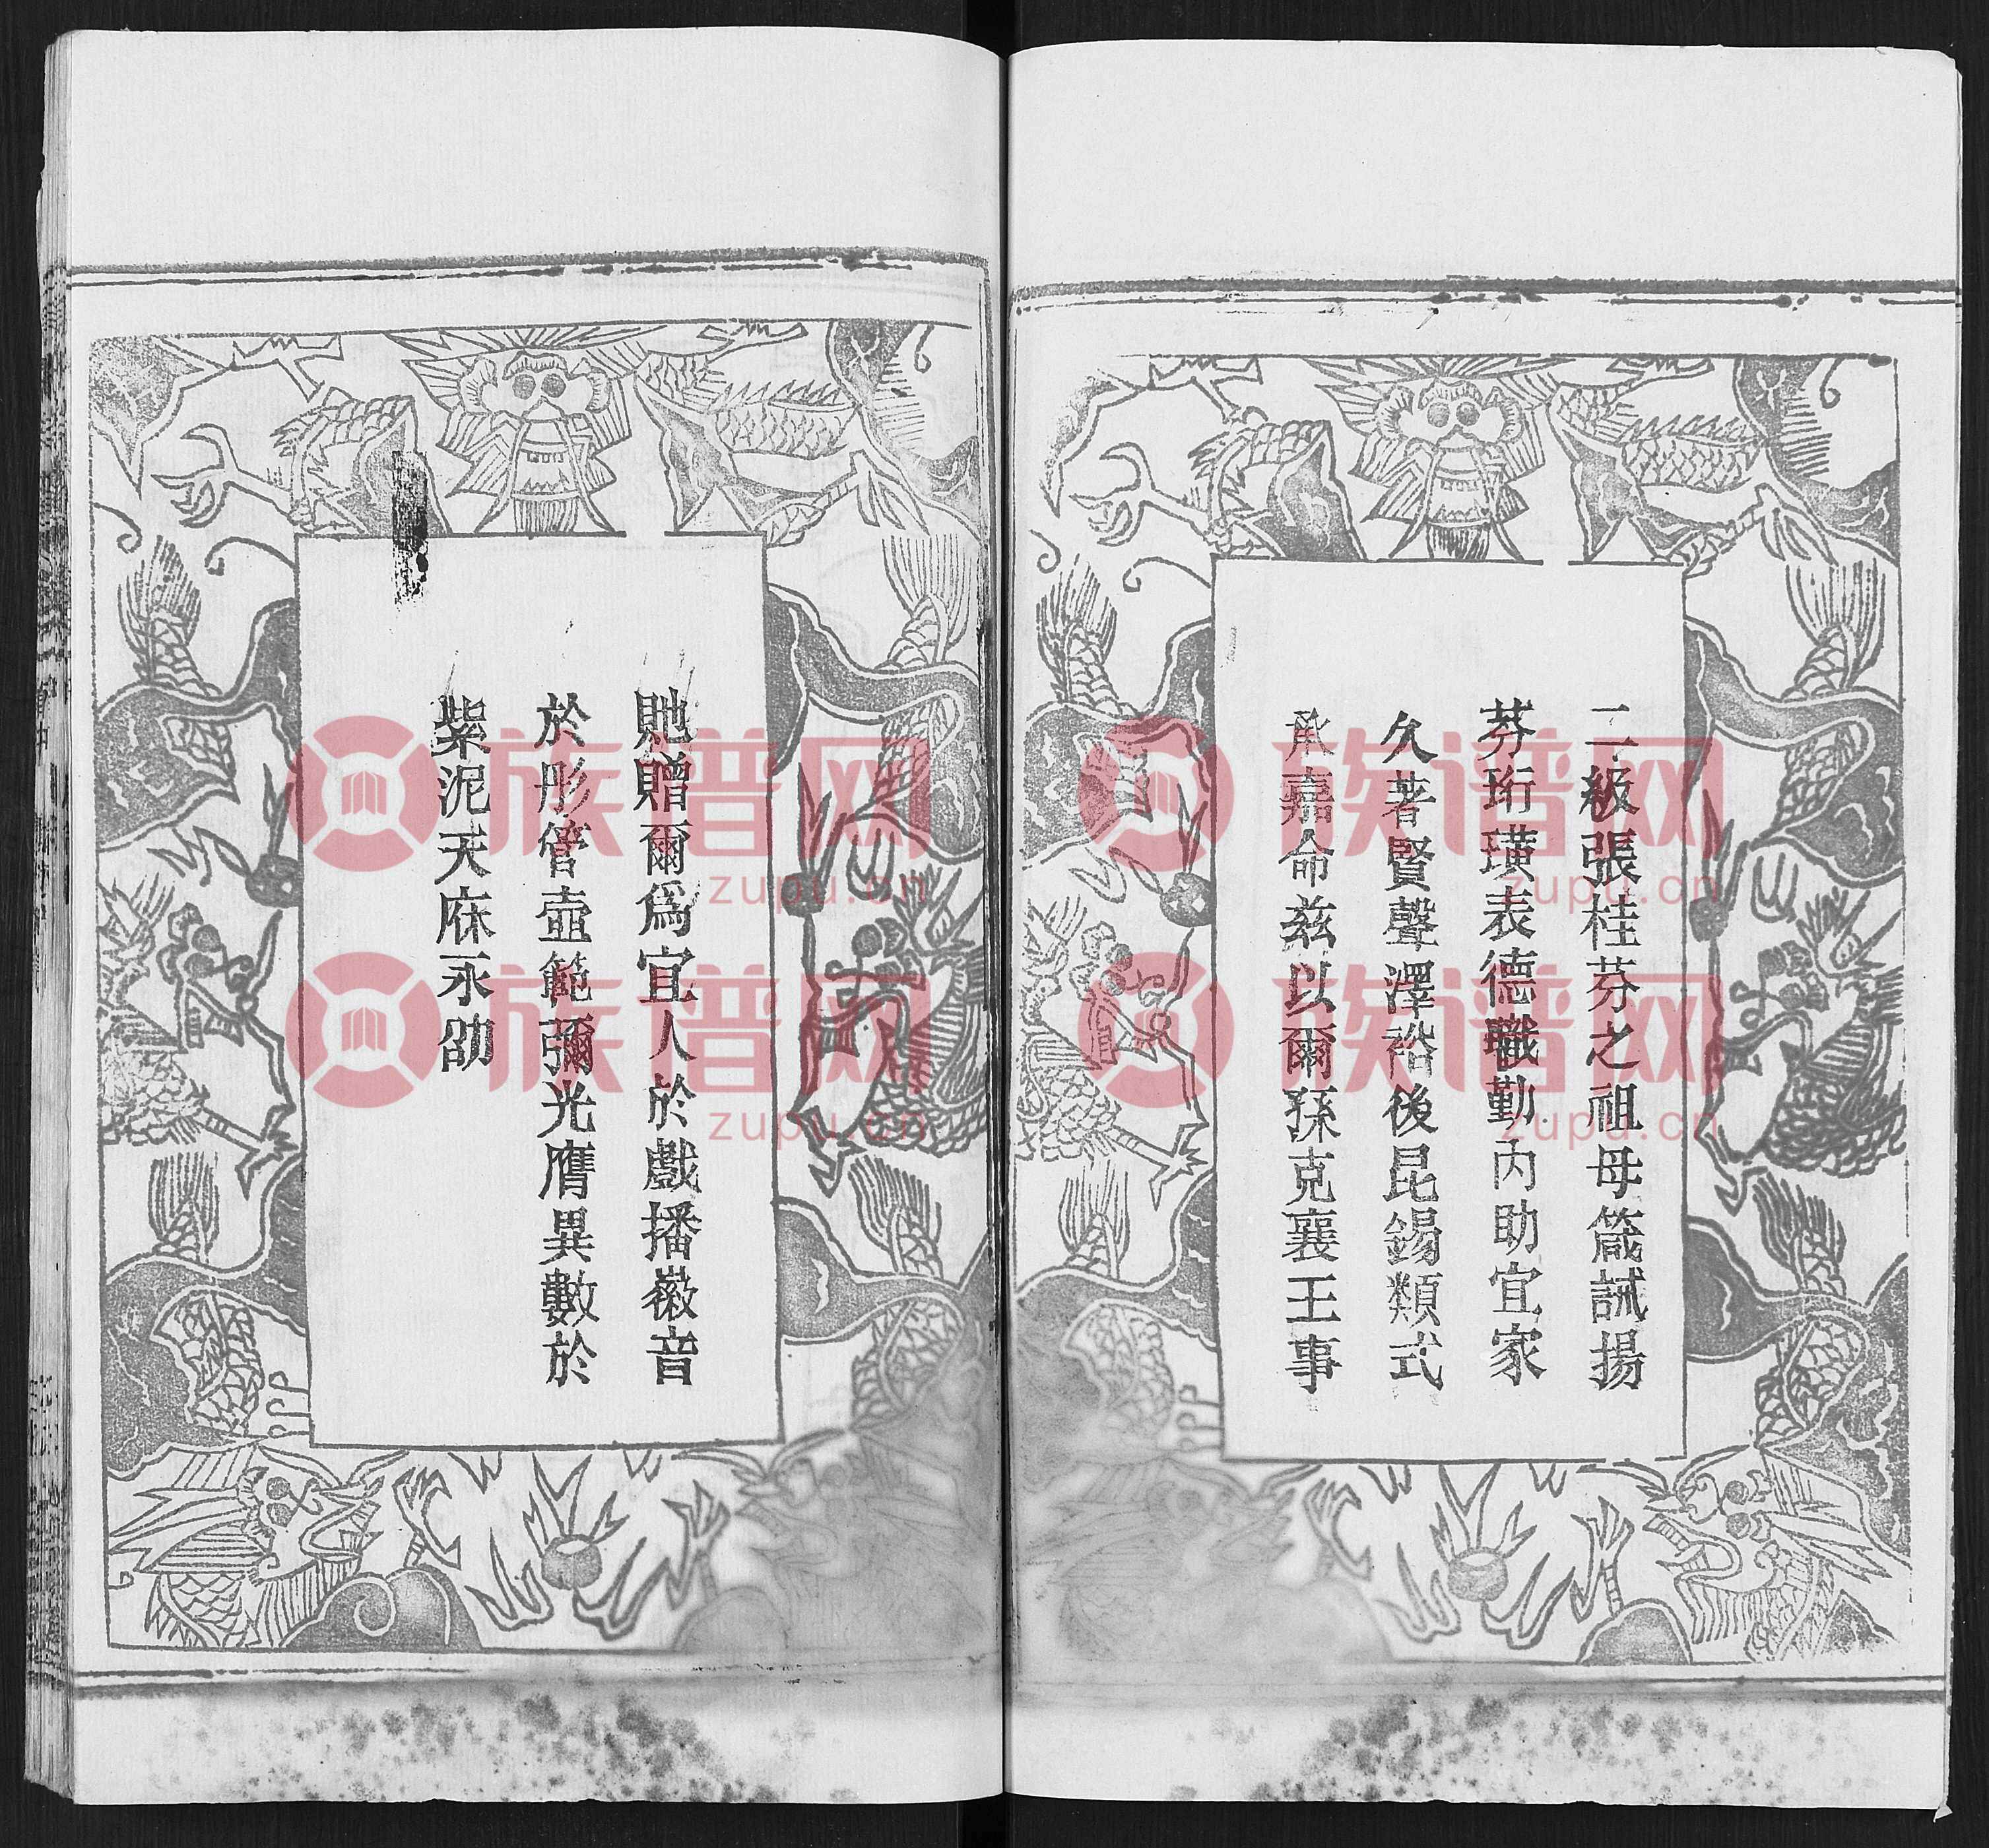 二級張桂芬之祖母箴誡揚
芬珩璜表德職勤內助宜家
久著賢聲澤裕後昆錫類式
承嘉命兹以爾孫克襄王事
貤贈爾爲宜人於戲播徽音
於彤管壼範彌光膺異數於
紫泥天庥永劭
族谱网
zupu.cn
族谱网
zupu.cn
族谱网
zupu.cn
族谱网
zupu.cn